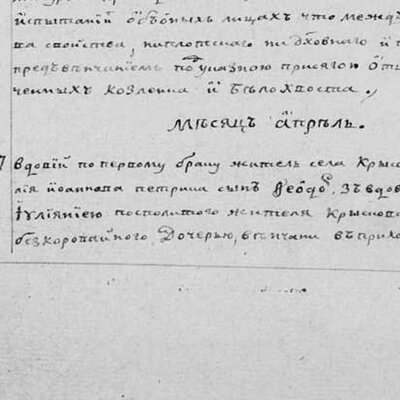 испытаніи обѣѡныхъ лицахъ что межд
ва свойства, ни плотскаго ни дховнаго и
предъ вѣнчаніемъ под указною присягою
ченныхъ Козленка и Бѣлохвоста.
Мѣсяцъ апрѣль.
вдовій по первому браку житель села Крыс
лія Иоаннова Петрица сынъ Ѳеѡдоръ. Зъ вдов
Іуліяніею посполитого жителя Крысков
безкоровайного дочерью, вѣнчани въ прихо